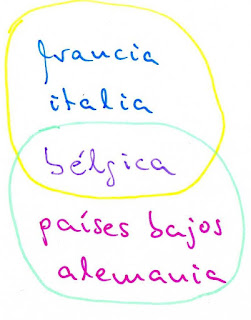 francia
italia
bélgica
países bajos
alemania